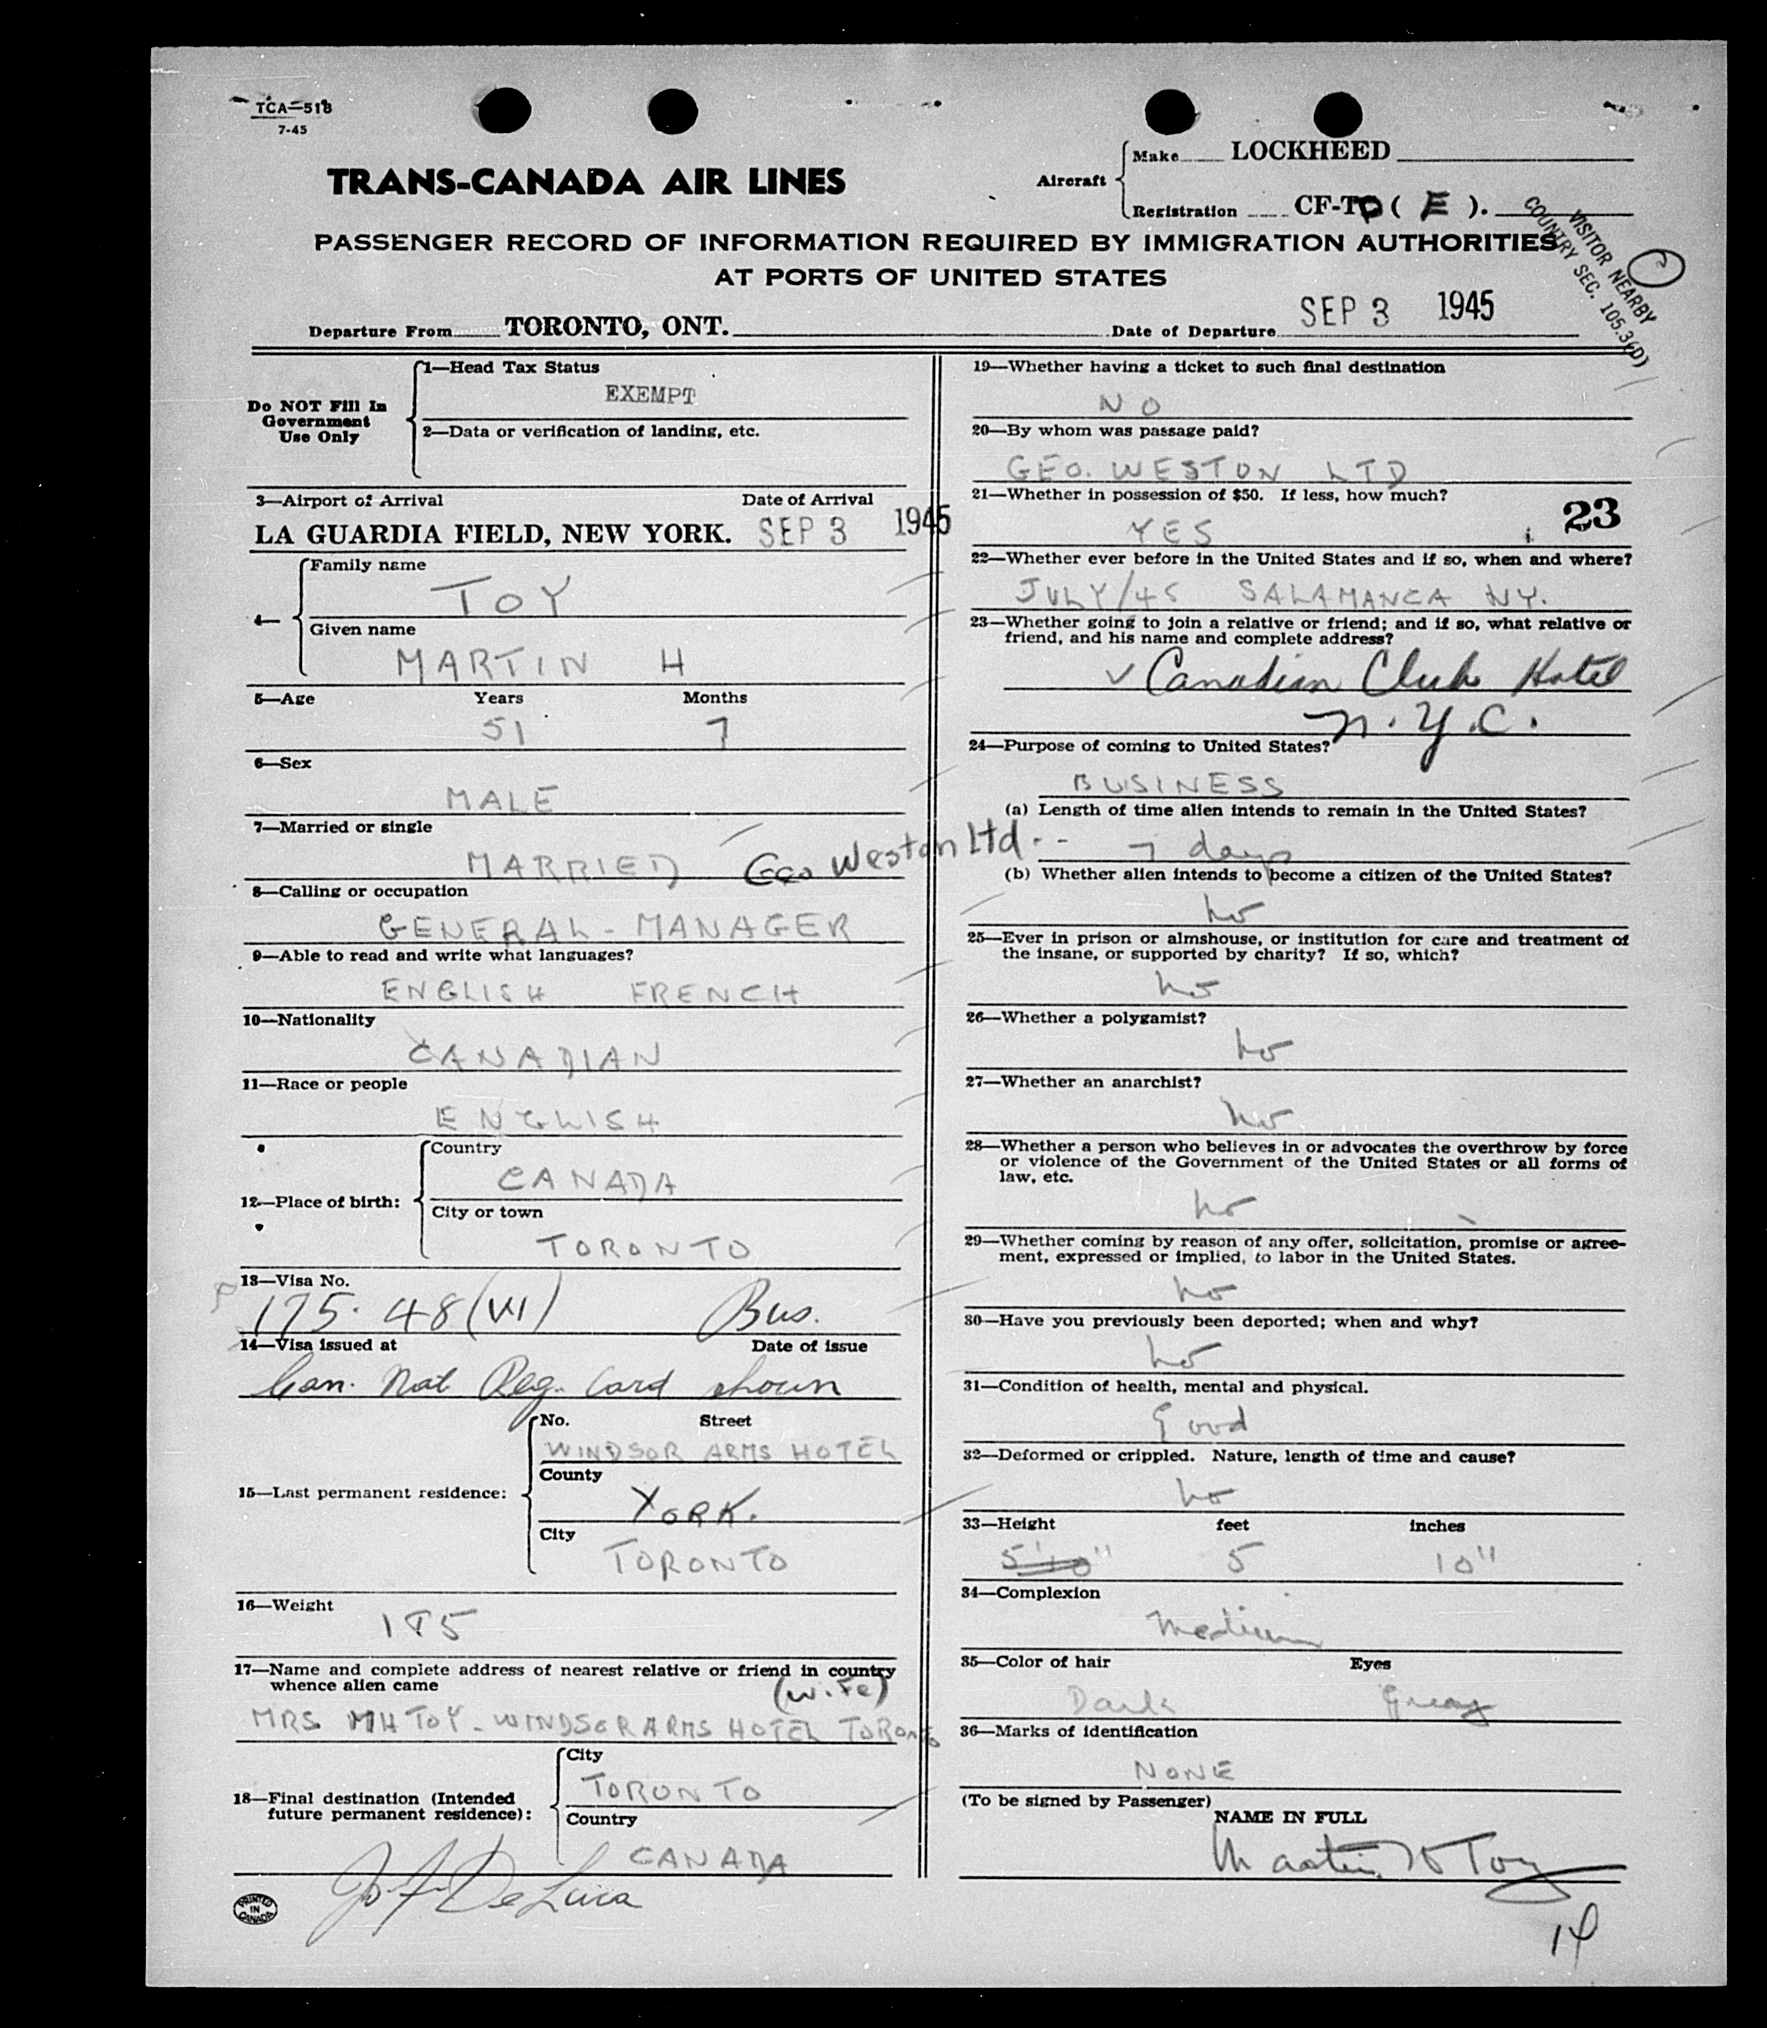 TCA—518
7-45
TRANS-CANADA AIR LINES
Aircraft
Make LOCKHEED
Registration CF-TD ( E ).
PASSENGER RECORD OF INFORMATION REQUIRED BY IMMIGRATION AUTHORITIES
AT PORTS OF UNITED STATES
VISITOR NEARBY
COUNTRY SEC. 105.3(D)
Departure From TORONTO, ONT. Date of Departure SEP 3 1945
Do NOT Fill In
Government
Use Only
1—Head Tax Status
EXEMPT
2—Data or verification of landing, etc.
3—Airport of Arrival Date of Arrival
LA GUARDIA FIELD, NEW YORK. SEP 3 1945
4—
Family name
TOY
Given name
MARTIN H
5—Age Years Months
51 7
6—Sex
MALE
7—Married or single
MARRIED Geo Weston Ltd.
8—Calling or occupation
GENERAL - MANAGER
9—Able to read and write what languages?
ENGLISH FRENCH
10—Nationality
CANADIAN
11—Race or people
ENGLISH
12—Place of birth:
Country
CANADA
City or town
TORONTO
13—Visa No.
175.48 (VI) Bus.
14—Visa issued at Date of issue
Can. Nat Reg. Card shown
15—Last permanent residence:
No. Street
WINDSOR ARMS HOTEL
County
YORK.
City
TORONTO
16—Weight
185
17—Name and complete address of nearest relative or friend in country
whence alien came
(wife)
MRS MH TOY - WINDSOR ARMS HOTEL TORONTO
18—Final destination (Intended
future permanent residence):
City
TORONTO
Country
CANADA
De Luca
PRINTED
IN
CANADA
19—Whether having a ticket to such final destination
NO
20—By whom was passage paid?
GEO. WESTON LTD
21—Whether in possession of $50. If less, how much?
YES
23
22—Whether ever before in the United States and if so, when and where?
JULY/45 SALAMANCA NY.
23—Whether going to join a relative or friend; and if so, what relative or
friend, and his name and complete address?
Canadian Club Hotel
N.Y.C.
24—Purpose of coming to United States?
BUSINESS
(a) Length of time alien intends to remain in the United States?
7 days
(b) Whether alien intends to become a citizen of the United States?
no
25—Ever in prison or almshouse, or institution for care and treatment of
the insane, or supported by charity? If so, which?
no
26—Whether a polygamist?
no
27—Whether an anarchist?
no
28—Whether a person who believes in or advocates the overthrow by force
or violence of the Government of the United States or all forms of
law, etc.
no
29—Whether coming by reason of any offer, solicitation, promise or agree-
ment, expressed or implied, to labor in the United States.
no
30—Have you previously been deported; when and why?
no
31—Condition of health, mental and physical.
Good
32—Deformed or crippled. Nature, length of time and cause?
no
33—Height feet inches
5'10" 5 10"
34—Complexion
Medium
35—Color of hair Eyes
Dark Grey
36—Marks of identification
NONE
(To be signed by Passenger)
NAME IN FULL
Martin H Toy
14